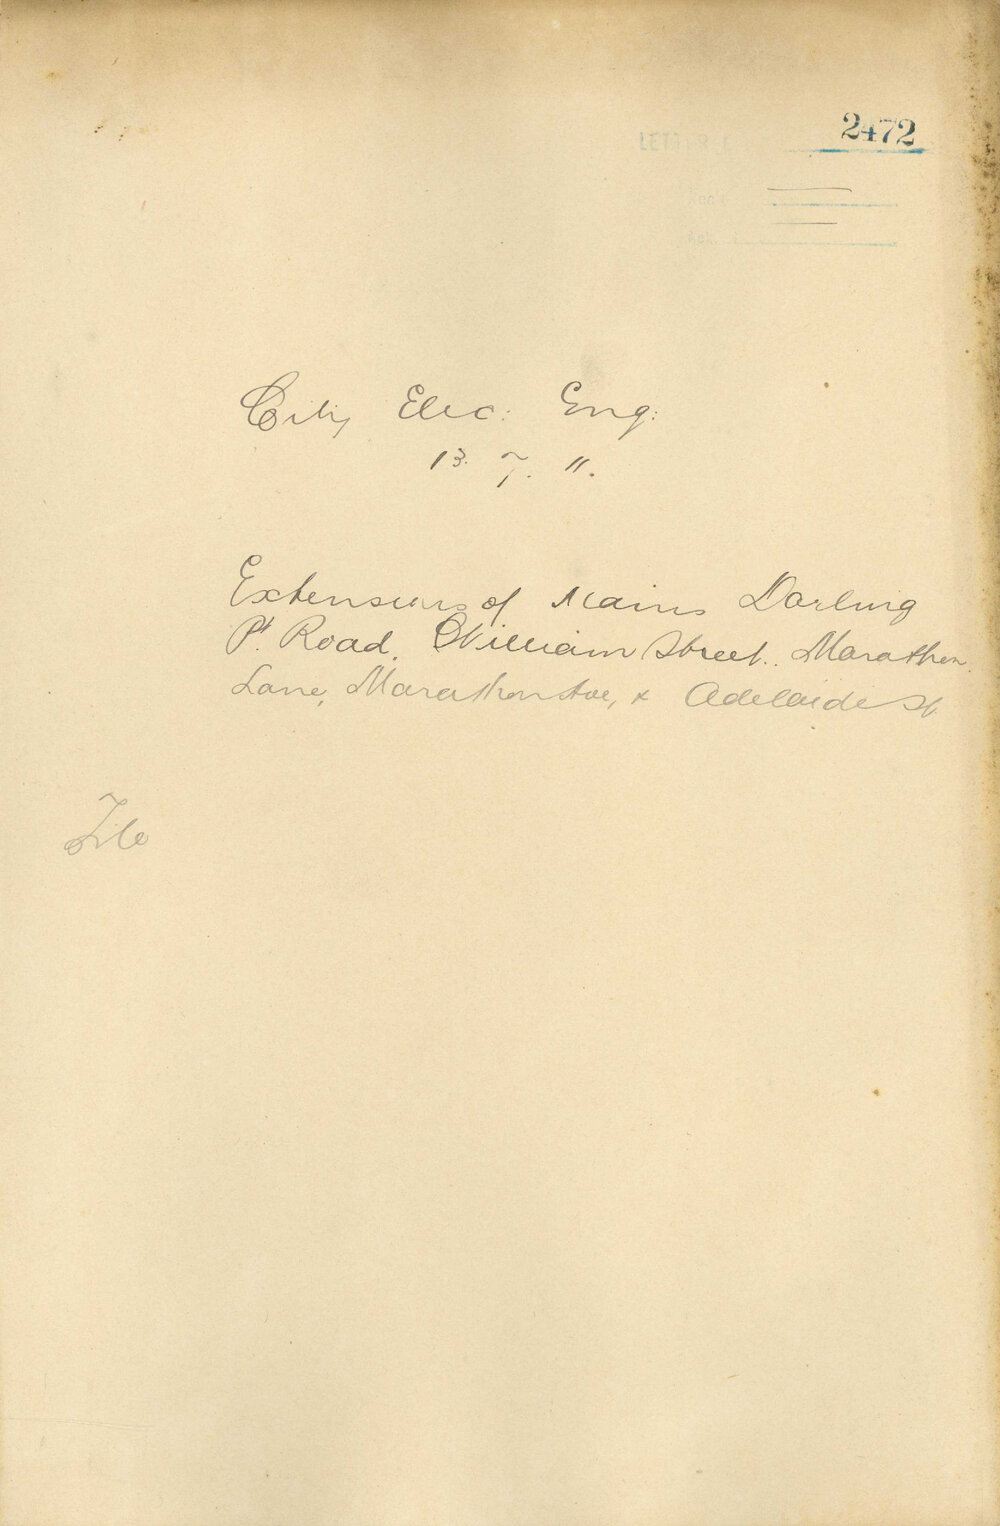 2472
LETTER
City Elec: Eng:
13. 7. 11.
Extensions of Mains Darling
Pt. Road, William Street. Marathon
Lane, Marathon Ave, & Adelaide St
File